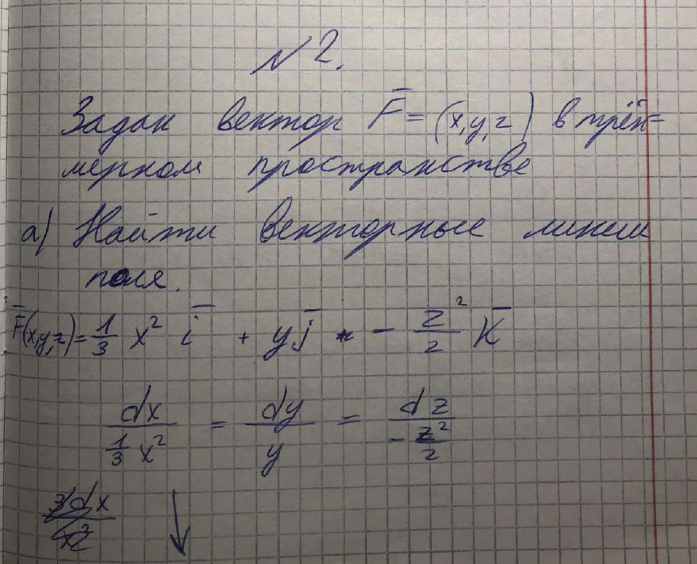 №2.
Задан вектор F̄=(x,y,z) в трёх-
мерном пространстве
а) Найти векторные линии
поля.
F̄(x,y,z)=1/3 x² ī + y j̄ - z²/2 k̄
dx/(1/3 x²) = dy/y = dz/(-z²/2)